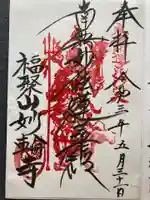 奉拝
令和三年五月三十日
南無妙法蓮華経
福聚山妙輪寺